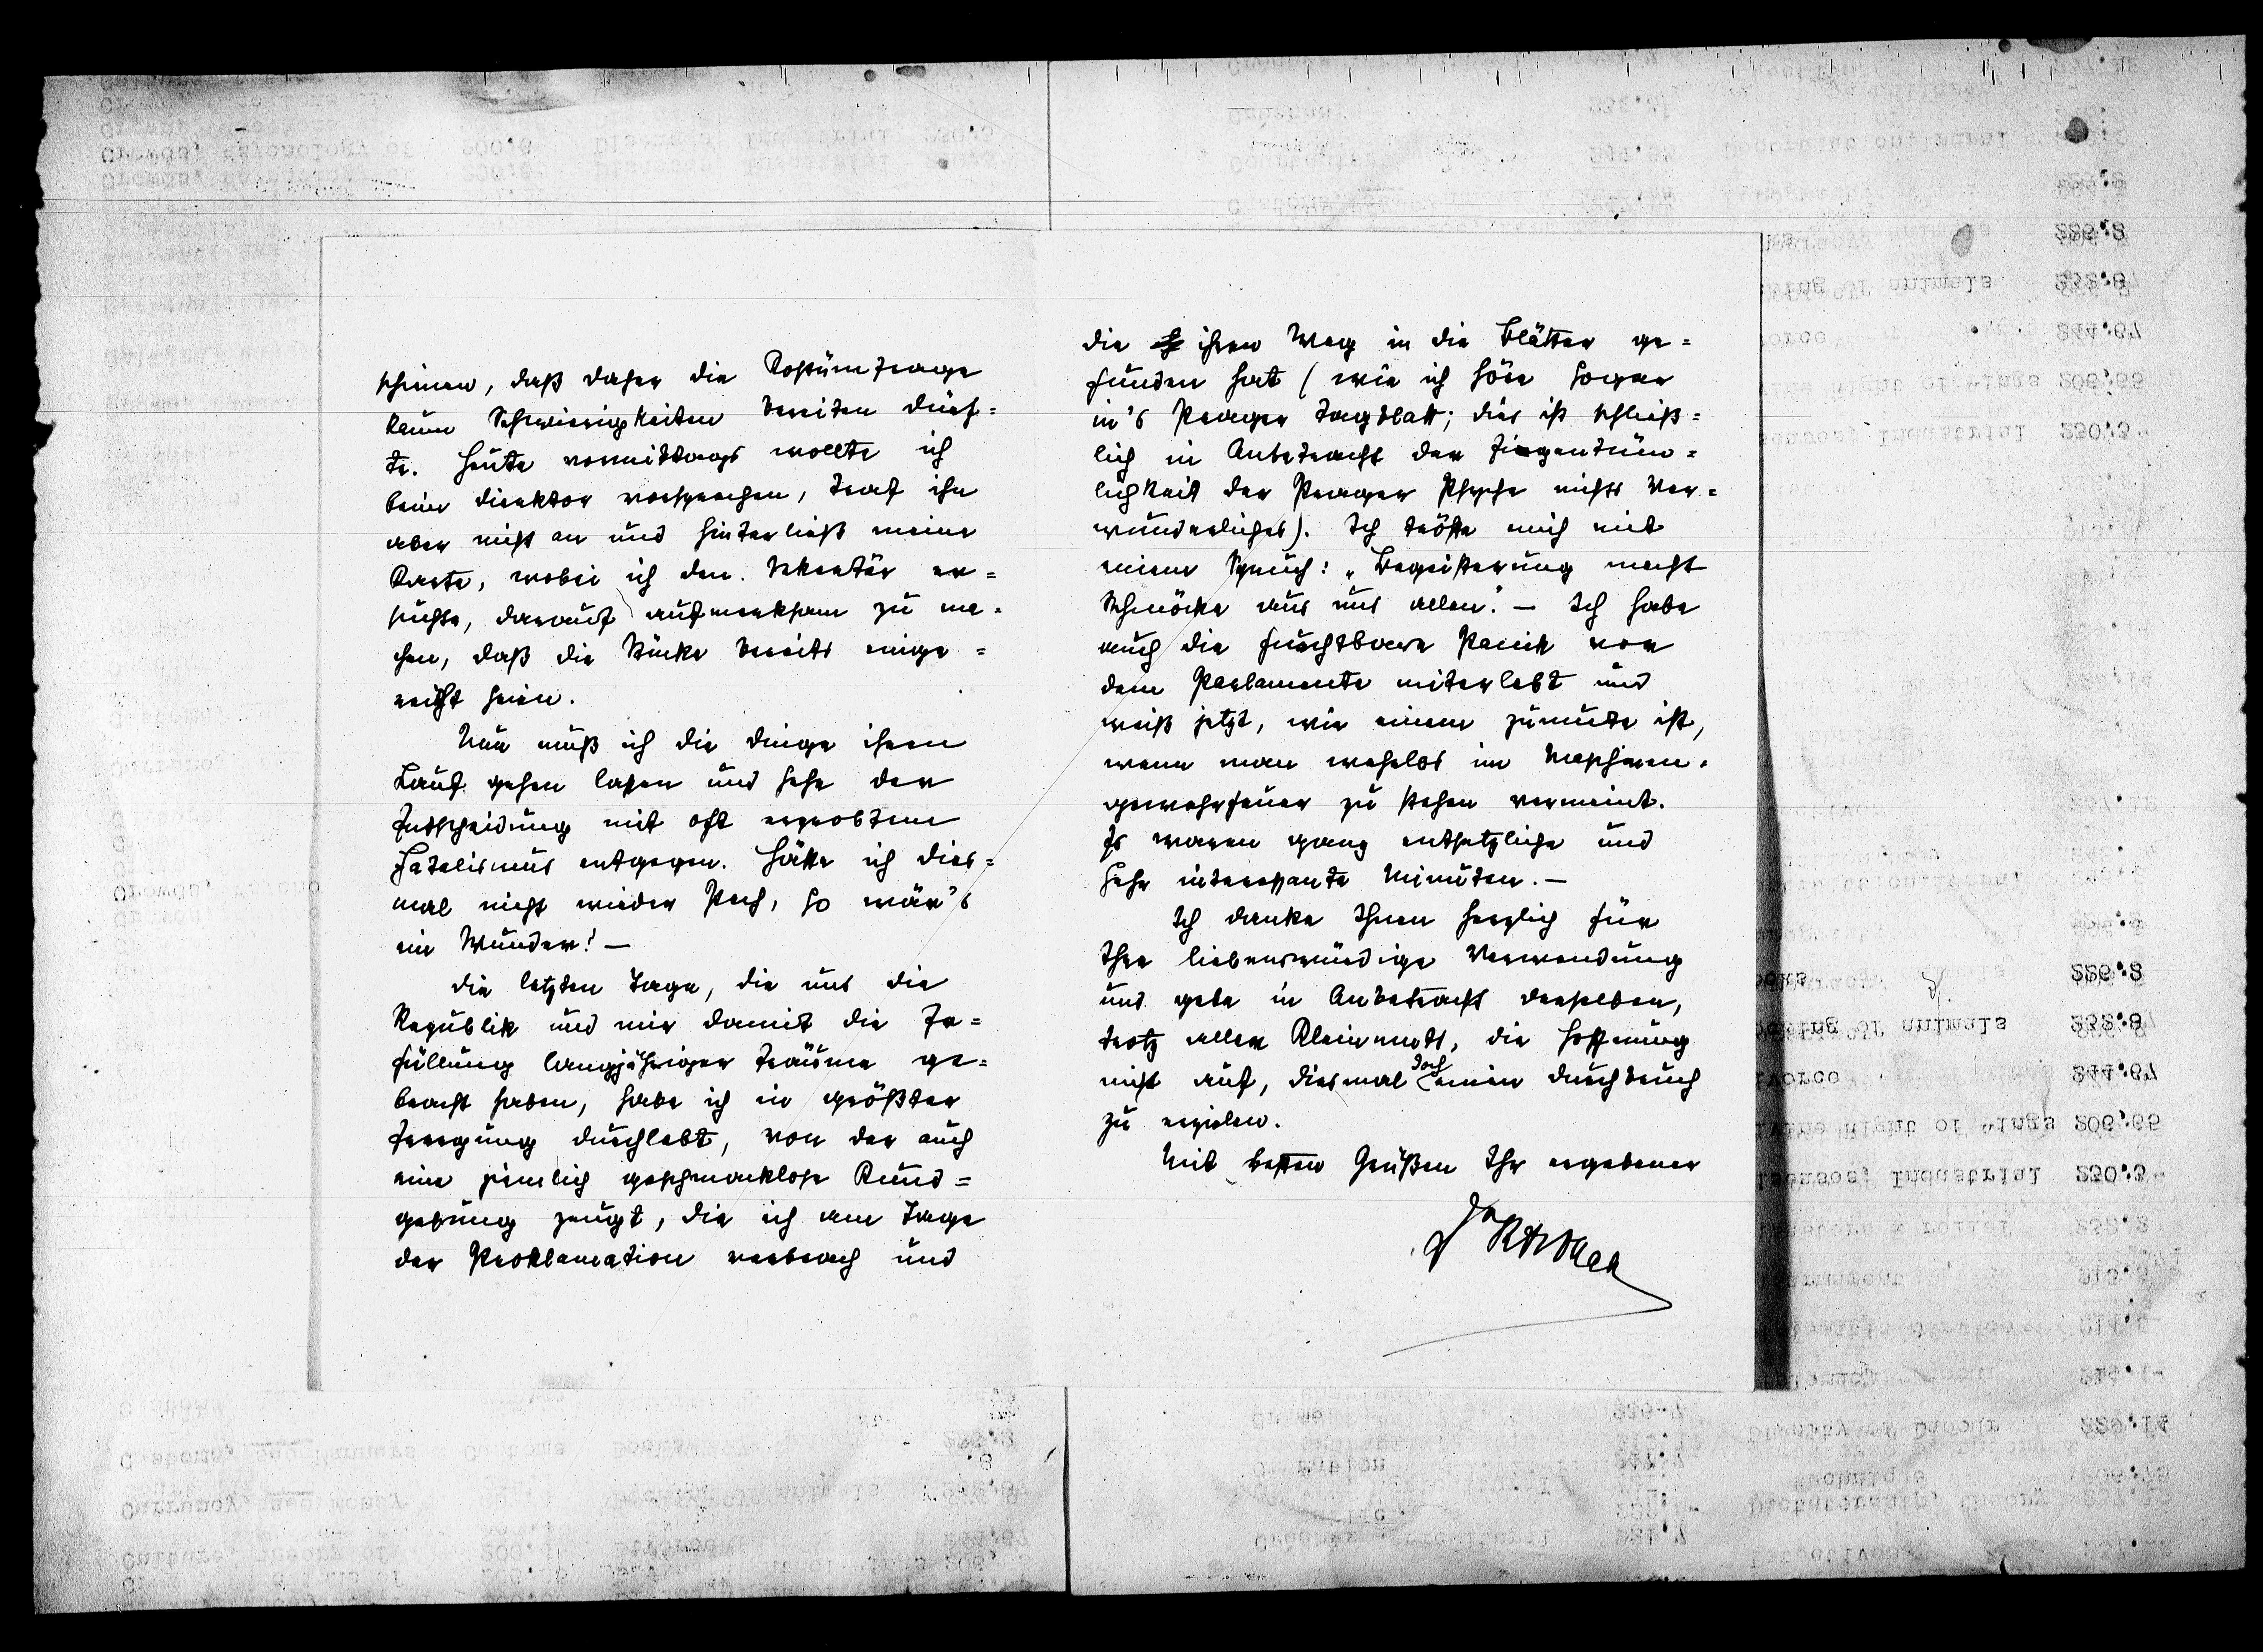 scheinen, daß daher die Kostümfrage
kaum Schwierigkeiten bereiten dürf=
te. Heute vormittags wollte ich
beim Direktor vorsprechen, traf ihn
aber nicht an und hinterließ meine
Karte, wobei ich den Sekretär er=
suchte, darauf aufmerksam zu ma=
chen, daß die Stücke bereits einge=
reicht seien.
Nun muß ich die Dinge ihren
Lauf gehen lassen und sehe der
Entscheidung mit oft erprobtem
Fatalismus entgegen. Hätte ich dies=
mal nicht wieder Pech, so wär's
ein Wunder! —
Die letzten Tage, die uns die
Republik und mir damit die Er=
füllung langjähriger Träume ge=
bracht haben, habe ich in größter
Erregung durchlebt, von der auch
eine ziemlich geschmacklose Kund=
gebung zeugt, die ich am Tage
der Proklamation verbrach und
die ihren Weg in die Blätter ge=
funden hat (wie ich höre sogar
in's Prager Tagblatt; dies ist schließ=
lich in Anbetracht der Eigentüm=
lichkeit der Prager Psyche nichts Ver=
wunderliches). Ich tröste mich mit
einem Spruch: „Begeisterung macht
Schmöcke aus uns allen." — Ich habe
auch die furchtbare Panik vor
dem Parlamente miterlebt und
weiß jetzt, wie einem zumute ist,
wenn man wehrlos im Maschinen=
gewehrfeuer zu stehen vermeint.
Es waren ganz entsetzliche und
sehr interessante Minuten. —
Ich danke Ihnen herzlich für
Ihre liebenswürdige Verwendung
und gebe in Anbetracht derselben,
trotz allen Kleinmuts, die Hoffnung
nicht auf, diesmal doch einen Durchbruch
zu erzielen.
Mit besten Grüßen Ihr ergebener